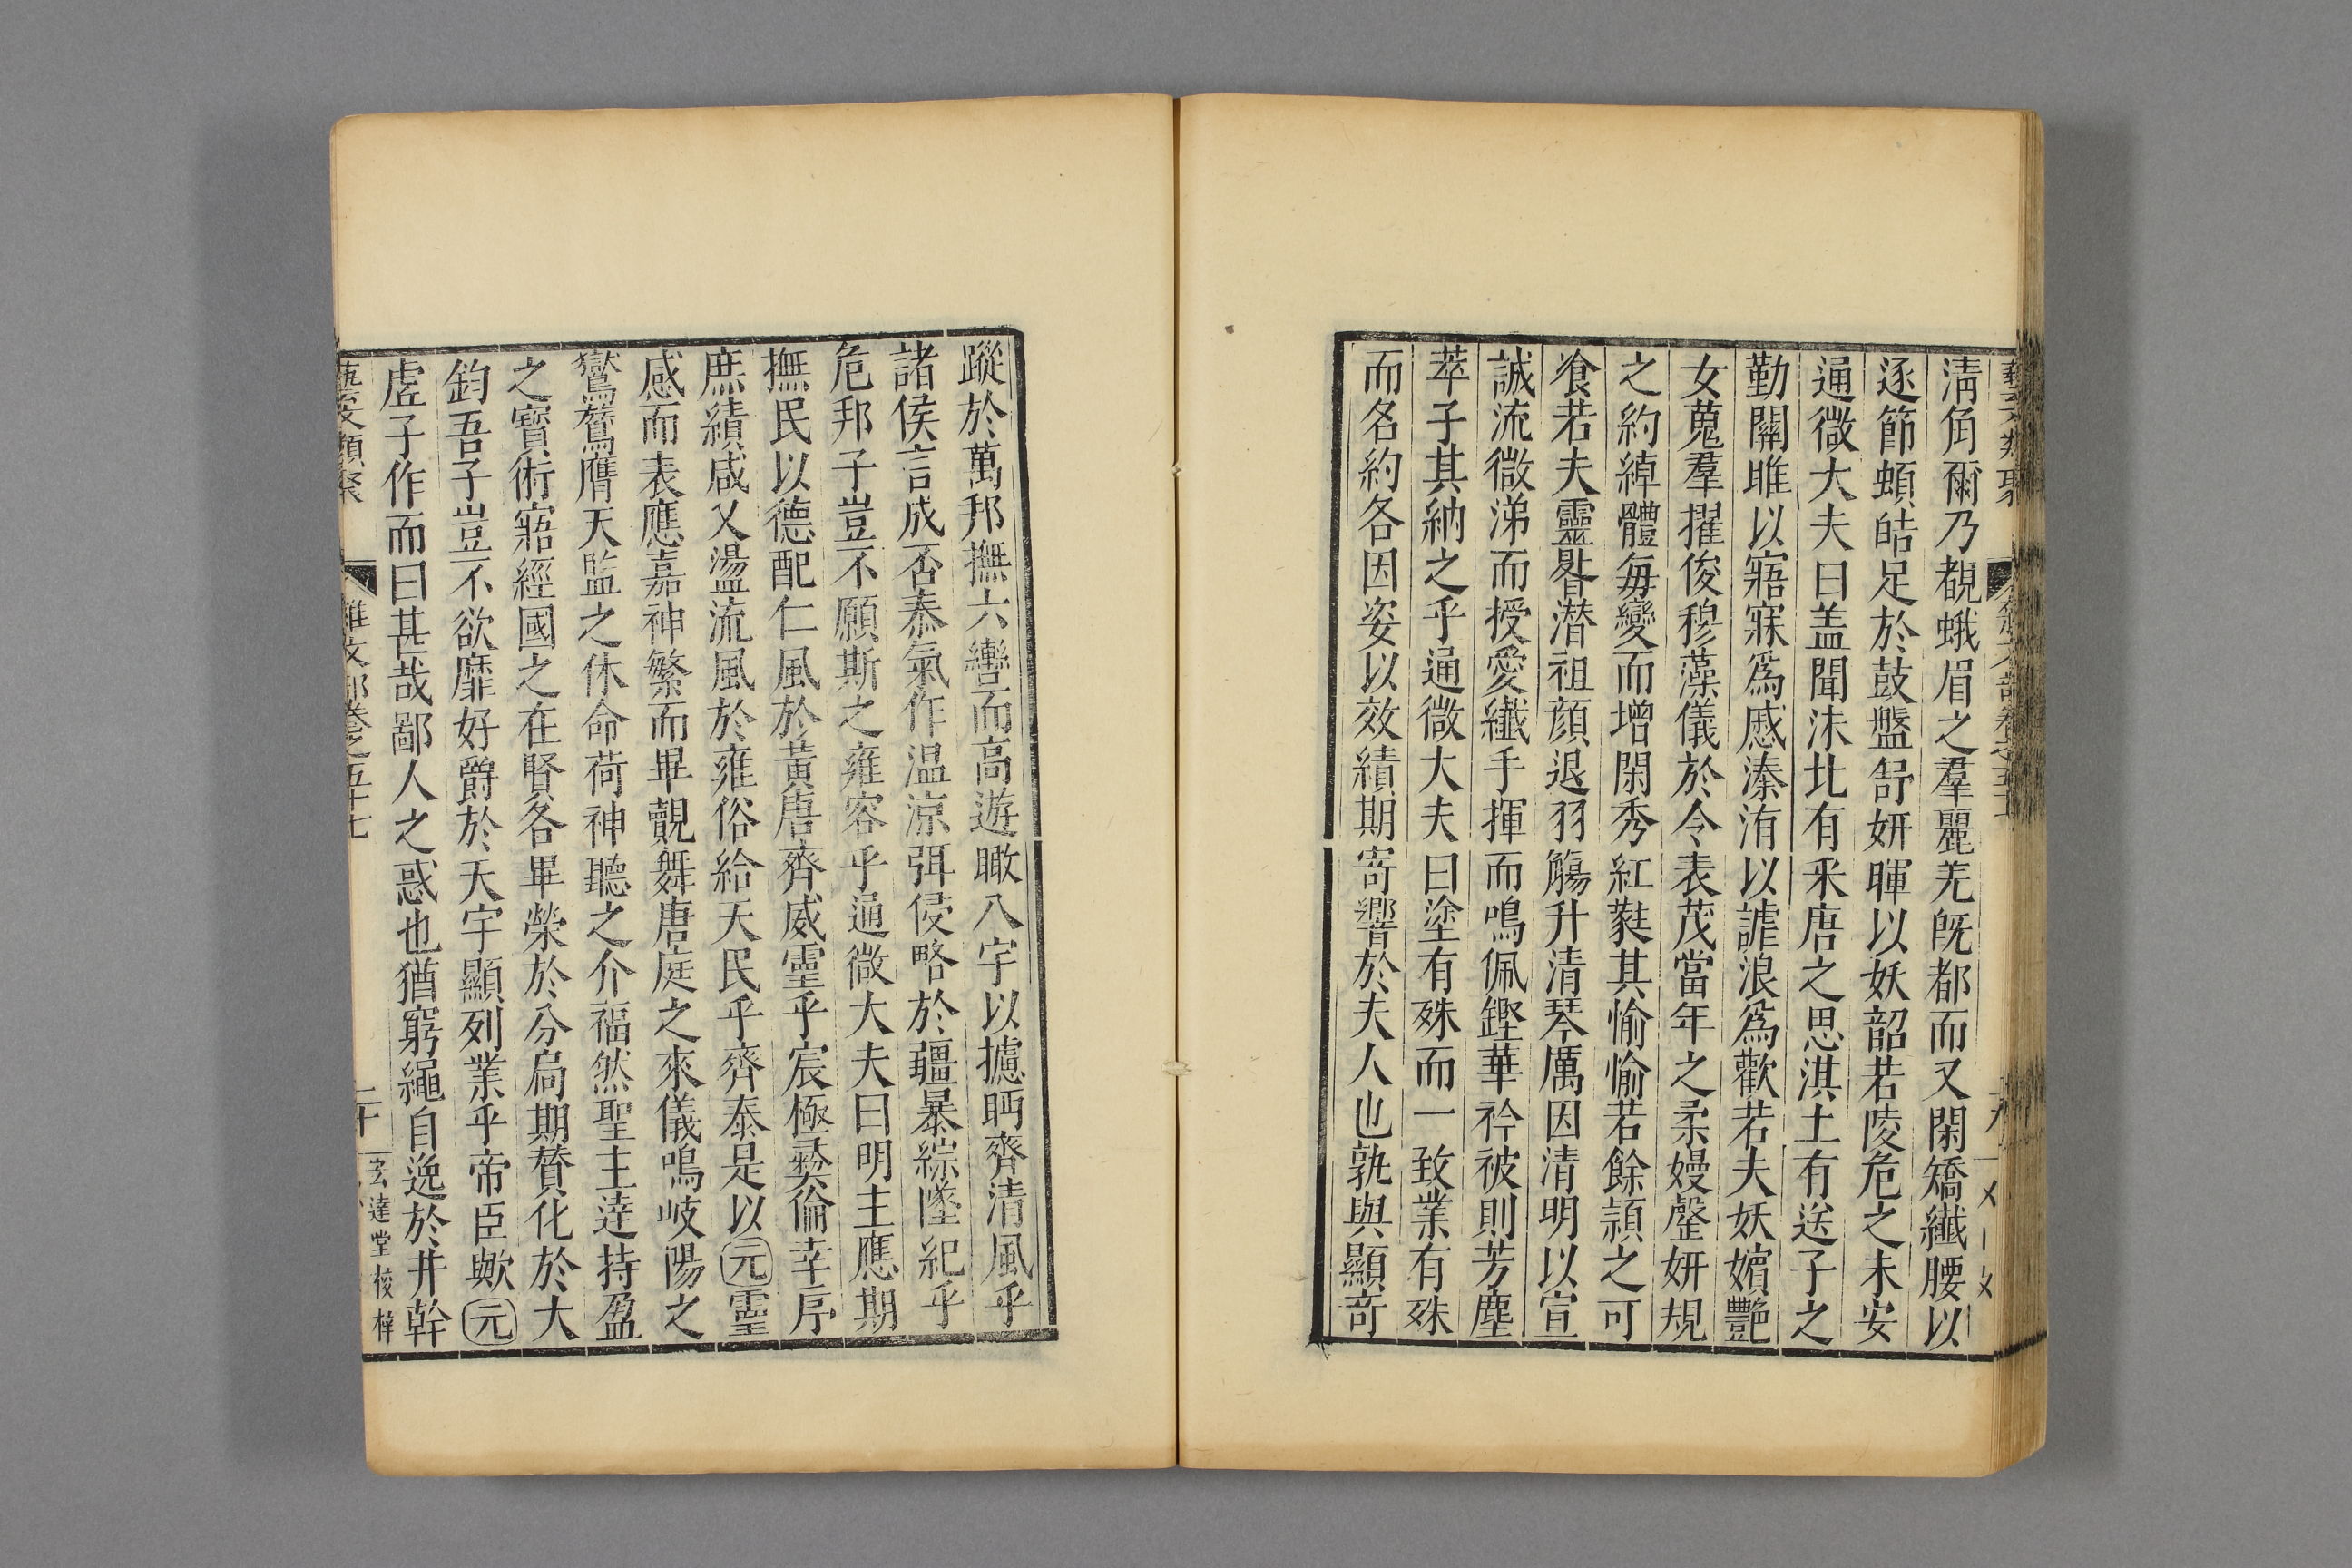 清角爾乃覩蛾眉之羣麗羌旣都而又閑矯纖腰以
逐節頓皓足於鼓盤舒妍暉以妖韶若陵危之未安
通微大夫曰盖聞沬北有采唐之思淇土有送子之
勤關雎以寤寐爲慼溱洧以謔浪爲歡若夫妖嬪艷
女蒐羣擢俊穆藻儀於令表茂當年之柔嫚罄妍規
之約綽體每變而增閑秀紅蕤其愉愉若餘頴之可
飡若夫靈晷潛徂顏退羽觴升清琴厲因清明以宣
誠流微涕而授愛纖手揮而鳴佩鏗華衿被則芳塵
萃子其納之乎通微大夫曰塗有殊而一致業有殊
而名約各因姿以效績期寄響於夫人也孰與顯奇
蹤於萬邦撫六轡而高遊瞰八宇以攄眄齊清風乎
諸侯言成否泰氣作温涼弭侵略於疆暴綜墜紀乎
危邦子豈不願斯之雍容乎通微大夫曰明主應期
撫民以德配仁風於黃唐齊威靈乎宸極彛倫幸序
庶績咸乂盪流風於雍俗給天民乎齊泰是以元靈
感而表應嘉神繁而畢覿舞唐庭之來儀鳴岐陽之
鸑鷟膺天監之休命荷神聽之介福然聖主達持盈
之寳術寤經國之在賢各畢榮於分局期賛化於大
鈞吾子豈不欲靡好爵於天宇顯列業乎帝臣歟元
虛子作而曰甚哉鄙人之惑也猶窮繩自逸於井幹
藝文類聚 雜文部卷之五十七 二十 玄達堂校梓